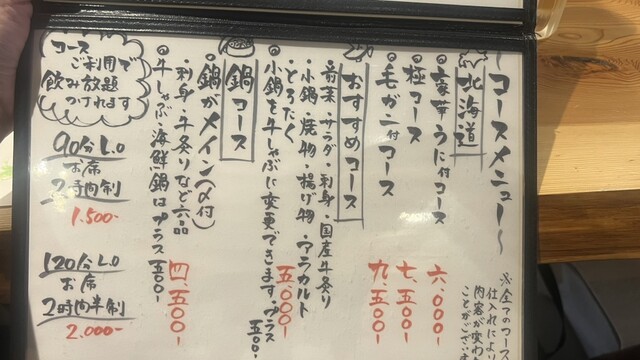 ～コースメニュー～
※全てのコース
仕入れによ
内容が変わ
ことがござい
北海道
◎豪華うに付コース 六.000-
◎極コース 七.500-
◎毛ガニ付コース 九.500-
おすすめコース
・前菜・サラダ・刺身・国産牛炙り
・小鍋・焼物・揚げ物・アラカルト
・とろたく 五.000-
◎小鍋を牛しゃぶに変更できます。プラス500-
鍋コース
◎鍋がメイン(〆付)
・刺身・牛炙りなど六品 四.500-
◎牛しゃぶ・海鮮鍋はプラス500-
コース
ご利用で
飲み放題
つけれます
90分L.O
お席
2時間制
1.500-
120分L.O
お席
2時間半制
2.000-